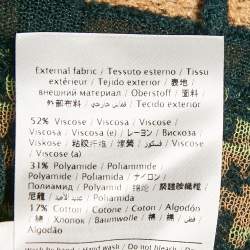 External fabric / Tessuto esterno / Tissu
extérieur / Tejido exterior / 表地
/ внешний материал / Oberstoff / 面料
/ 外部布料 / قماش خارجي / Tecido exterior
52% Viscose / Viscosa / Viscose /
Viscosa / Viscosa (e) / レーヨン / Вискоза
/ Viskose / 粘胶纤维 / 嫘縈 / فسكوز /
Viscose (a)
31% Polyamide / Poliammide /
Polyamide / Poliamida / ナイロン /
Полиамид / Polyamid / / 聚酰胺纤维
/ 尼龍 / / Poliamida
17% Cotton / Cotone / Coton / Algodón
/ 綿 / Хлопок / Baumwolle / 棉 / 棉 /
قطن / Algodão
Wash by hand / Hand wash / Do not bleach / Do